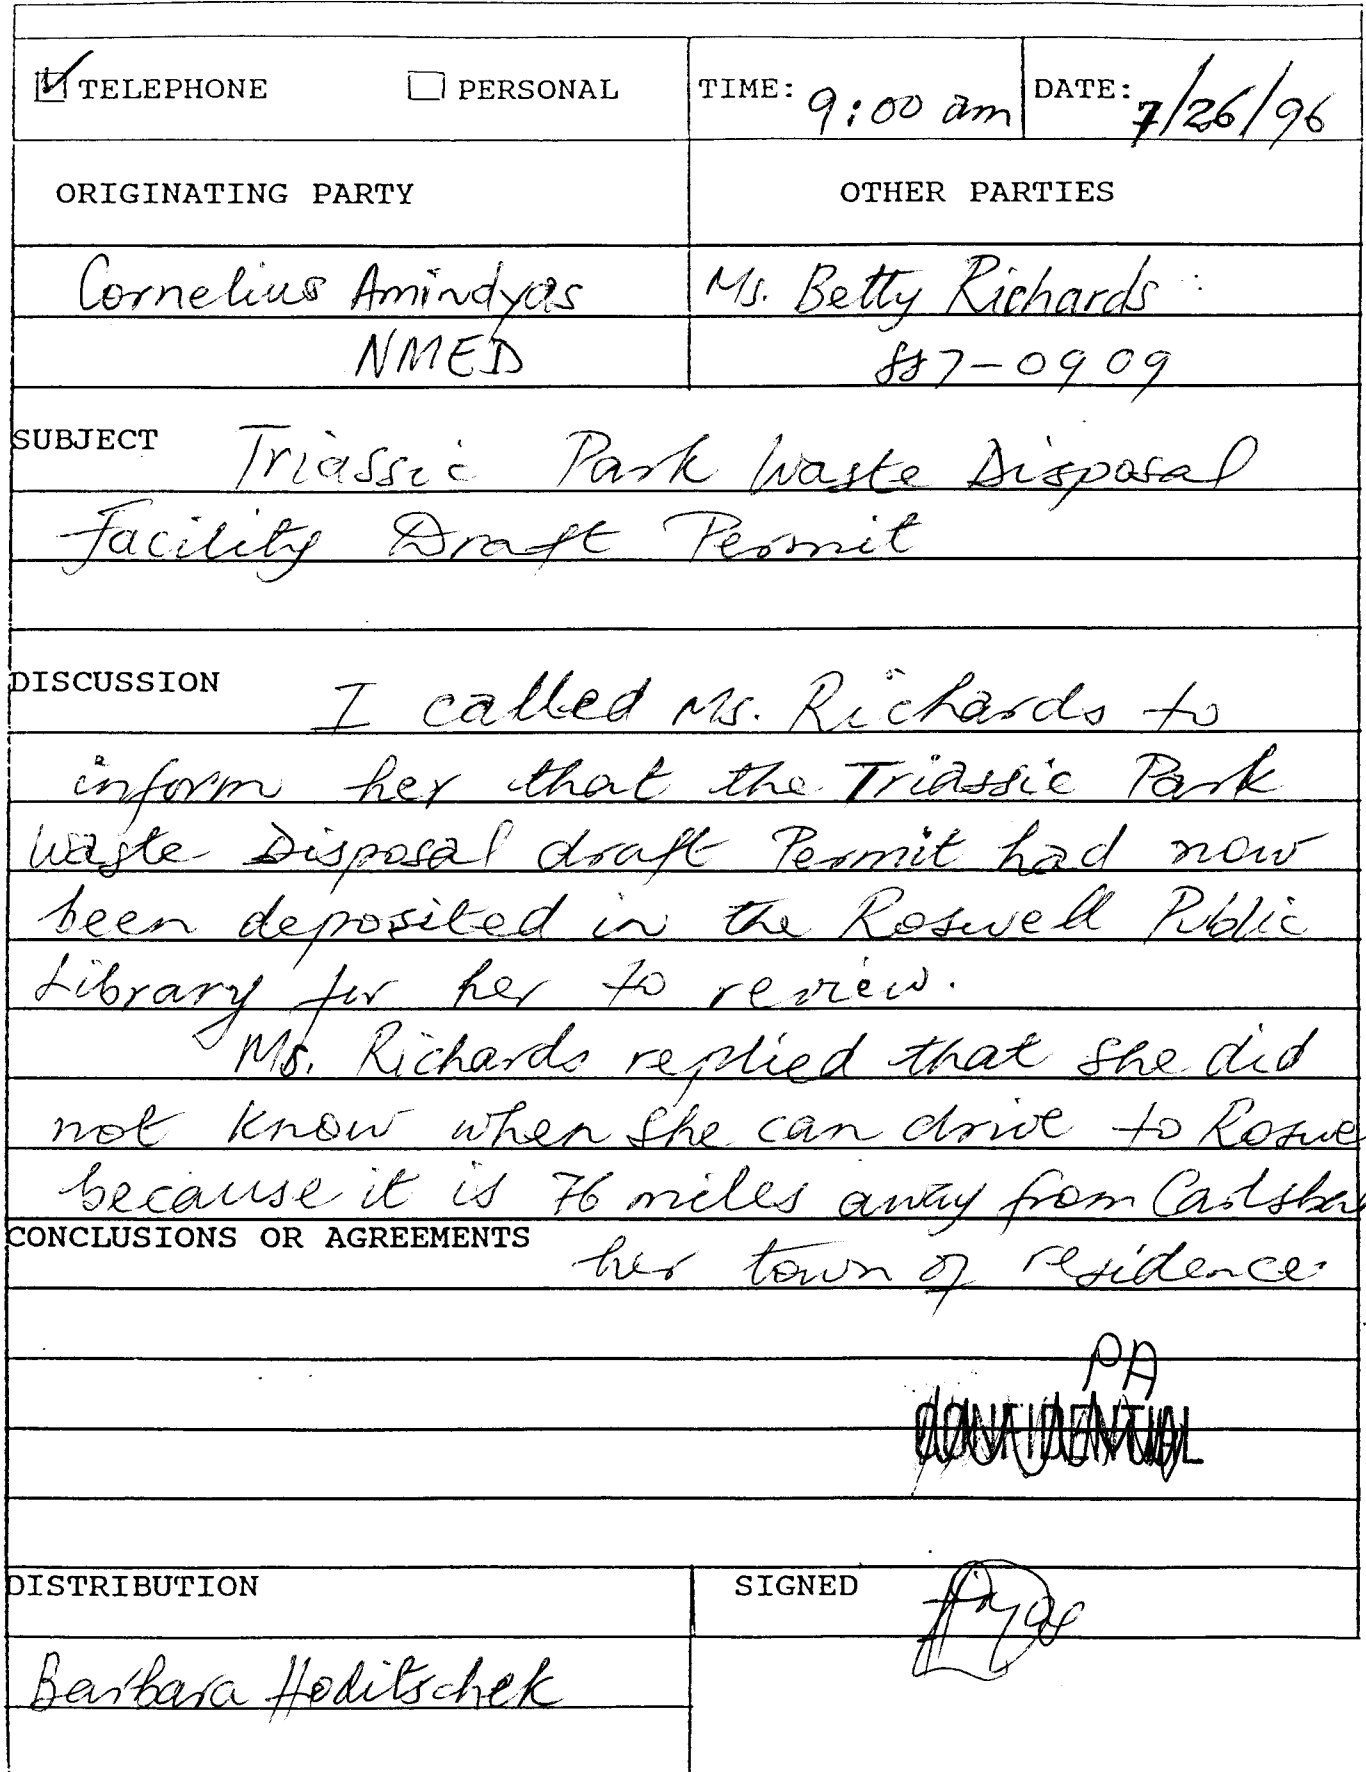 TELEPHONE PERSONAL TIME: 9:00 am DATE: 7/26/96
ORIGINATING PARTY OTHER PARTIES
Cornelius Amindyas Ms. Betty Richards
NMED 887-0909
SUBJECT Triassic Park Waste Disposal
Facility Draft Permit
DISCUSSION I called Ms. Richards to
inform her that the Triassic Park
Waste Disposal draft Permit had now
been deposited in the Roswell Public
Library for her to review.
Ms. Richards replied that she did
not know when she can drive to Roswe
because it is 76 miles away from Carlsba
CONCLUSIONS OR AGREEMENTS her town of residence.
PA
CONFIDENTIAL
DISTRIBUTION SIGNED
Barbara Hoditschek